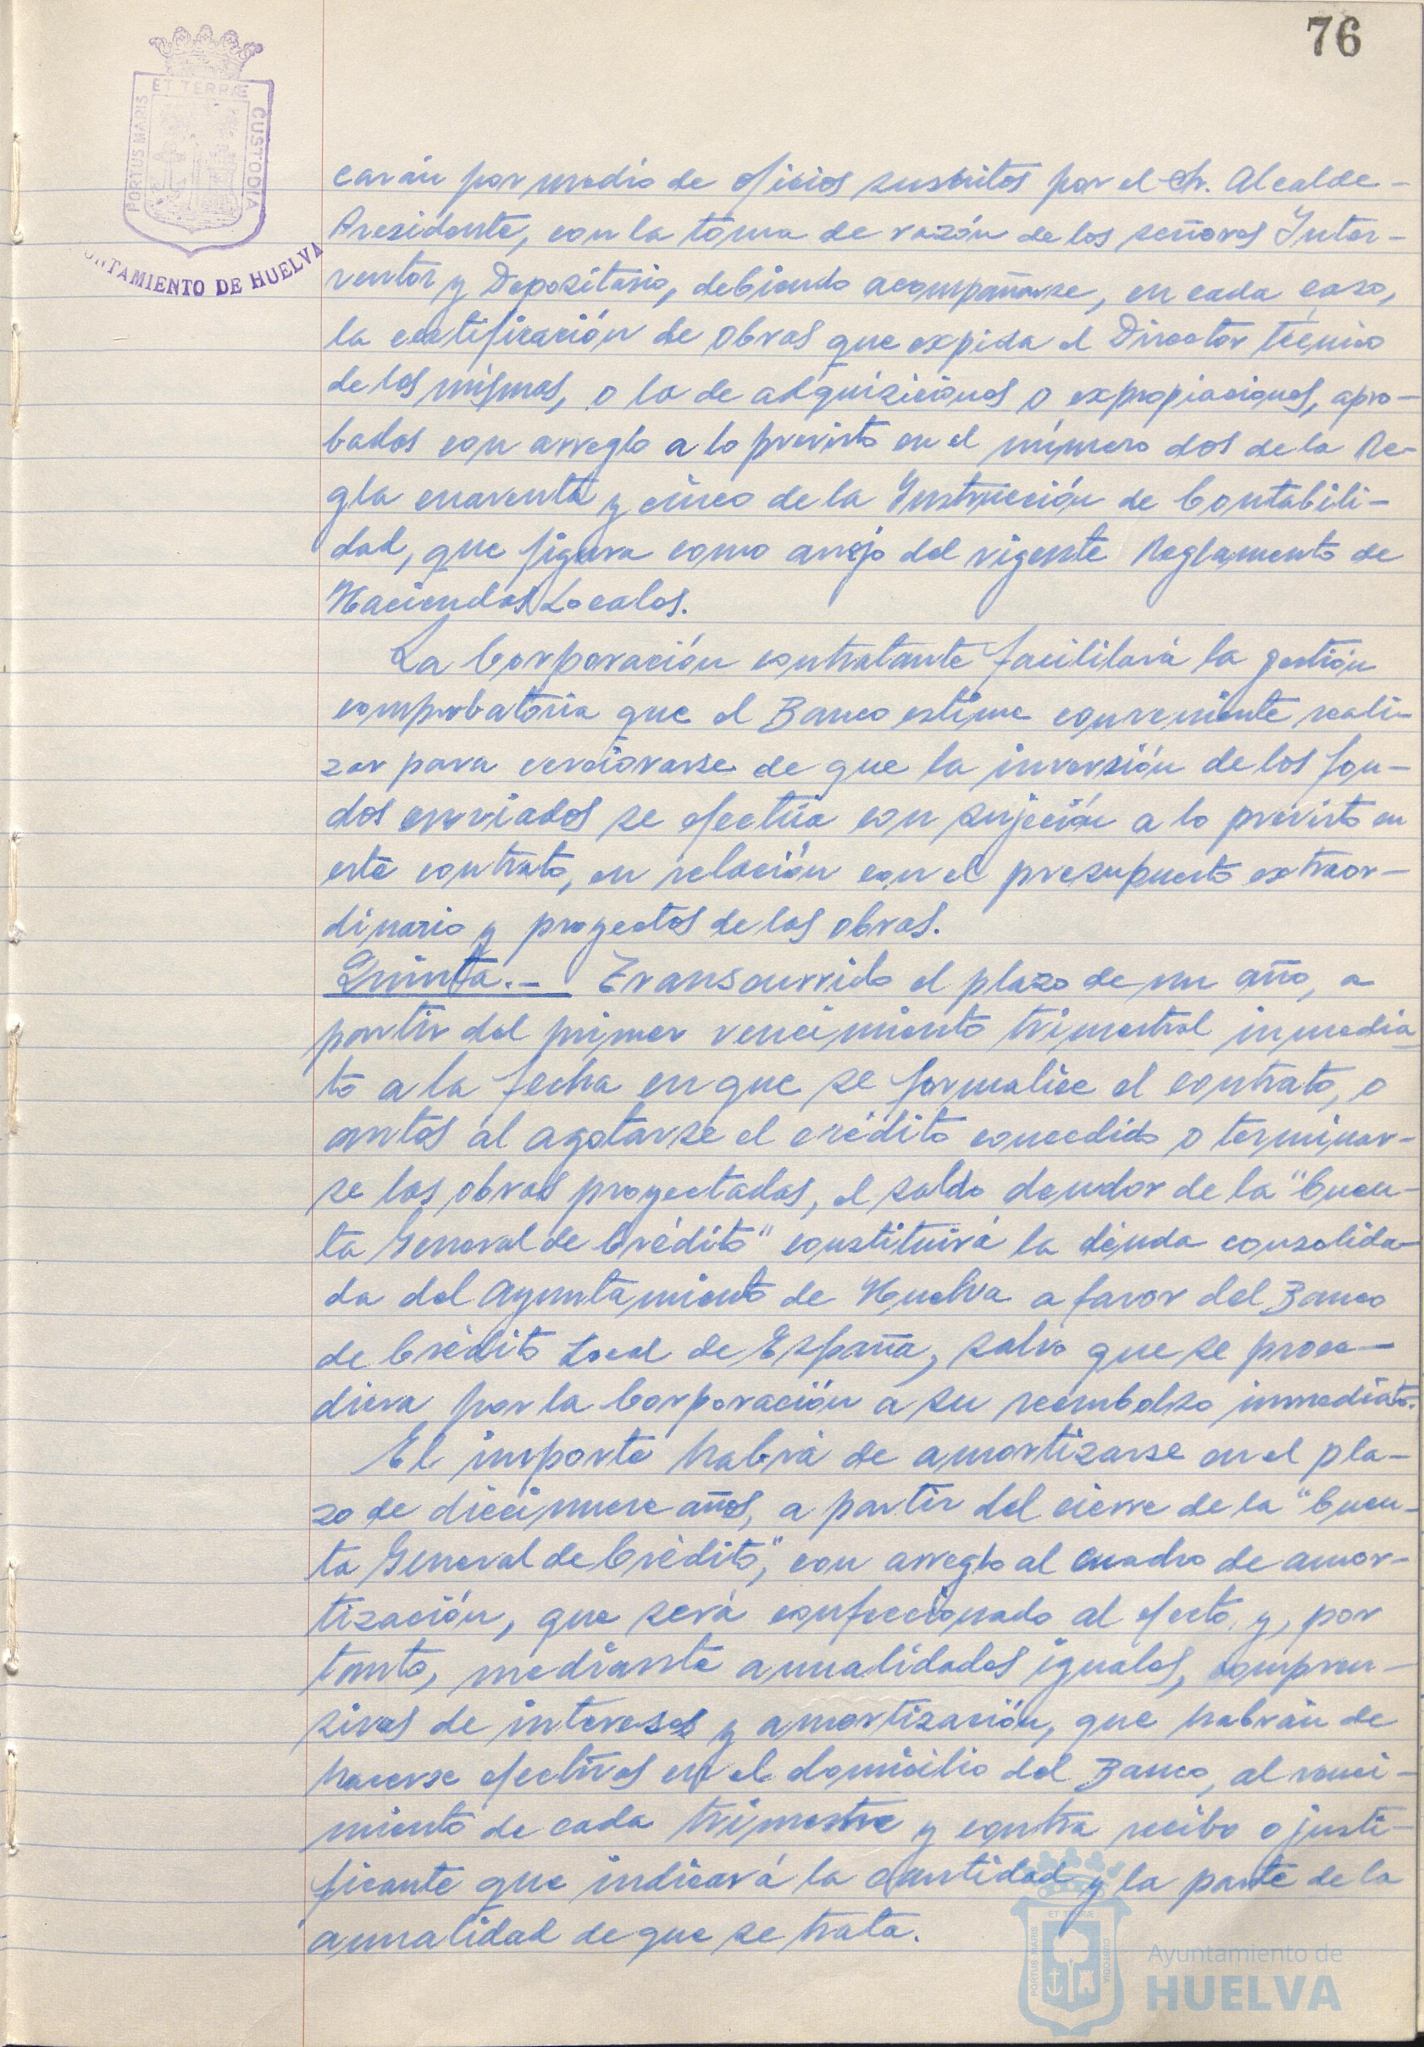 76
ET TERRÆ
PORTUS MARIS
CUSTODIA
UNTAMIENTO DE HUELVA
carán por medio de oficios suscritos por el Sr. Alcalde-
Presidente, con la toma de razón de los señores Inter-
ventor y Depositario, debiendo acompañarse, en cada caso,
la certificación de obras que expida el Director técnico
de las mismas, o la de adquisiciones o expropiaciones, apro-
badas con arreglo a lo previsto en el número dos de la Re-
gla cuarenta y cinco de la Instrucción de Contabili-
dad, que figura como anejo del vigente Reglamento de
Haciendas Locales.
La Corporación contratante facilitará la gestión
comprobatoria que el Banco estime conveniente reali-
zar para cerciorarse de que la inversión de los fon-
dos enviados se efectúa con sujeción a lo previsto en
este contrato, en relación con el presupuesto extraor-
dinario y proyectos de las obras.
Quinta.- Transcurrido el plazo de un año, a
partir del primer vencimiento trimestral inmedia
to a la fecha en que se formalice el contrato, o
antes al agotarse el crédito concedido o terminar-
se las obras proyectadas, el saldo deudor de la "Cuen-
ta General de Crédito" constituirá la deuda consolida-
da del Ayuntamiento de Huelva a favor del Banco
de Crédito Local de España, salvo que se proce-
diera por la Corporación a su reembolso inmediato.
El importe habrá de amortizarse en el pla-
zo de diecinueve años, a partir del cierre de la "Cuen-
ta General de Crédito", con arreglo al cuadro de amor-
tización, que será confeccionado al efecto y, por
tanto, mediante anualidades iguales, compren-
sivas de intereses y amortización, que habrán de
hacerse efectivas en el domicilio del Banco, al venci-
miento de cada trimestre y contra recibo o justi-
ficante que indicará la cantidad y la parte de la
anualidad de que se trata.
ET TERRÆ
PORTUS MARIS
CUSTODIA
Ayuntamiento de
HUELVA